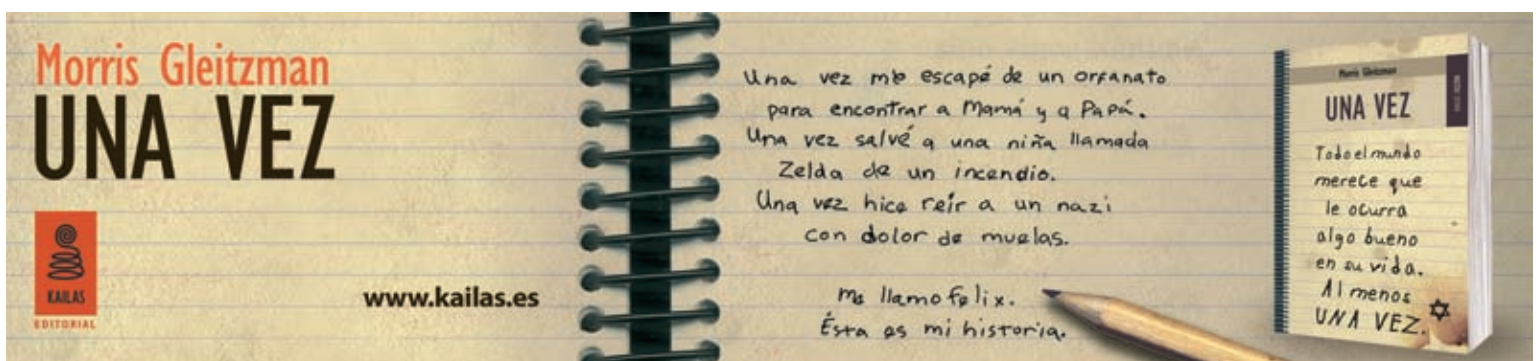 Morris Gleitzman
UNA VEZ
KAILAS
EDITORIAL
www.kailas.es
Una vez me escapé de un orfanato
para encontrar a Mamá y a Papá.
Una vez salvé a una niña llamada
Zelda de un incendio.
Una vez hice reír a un nazi
con dolor de muelas.
Me llamo felix.
Ésta es mi historia.
Morris Gleitzman
UNA VEZ
Todo el mundo
merece que
le ocurra
algo bueno
en su vida.
Al menos
UNA VEZ.